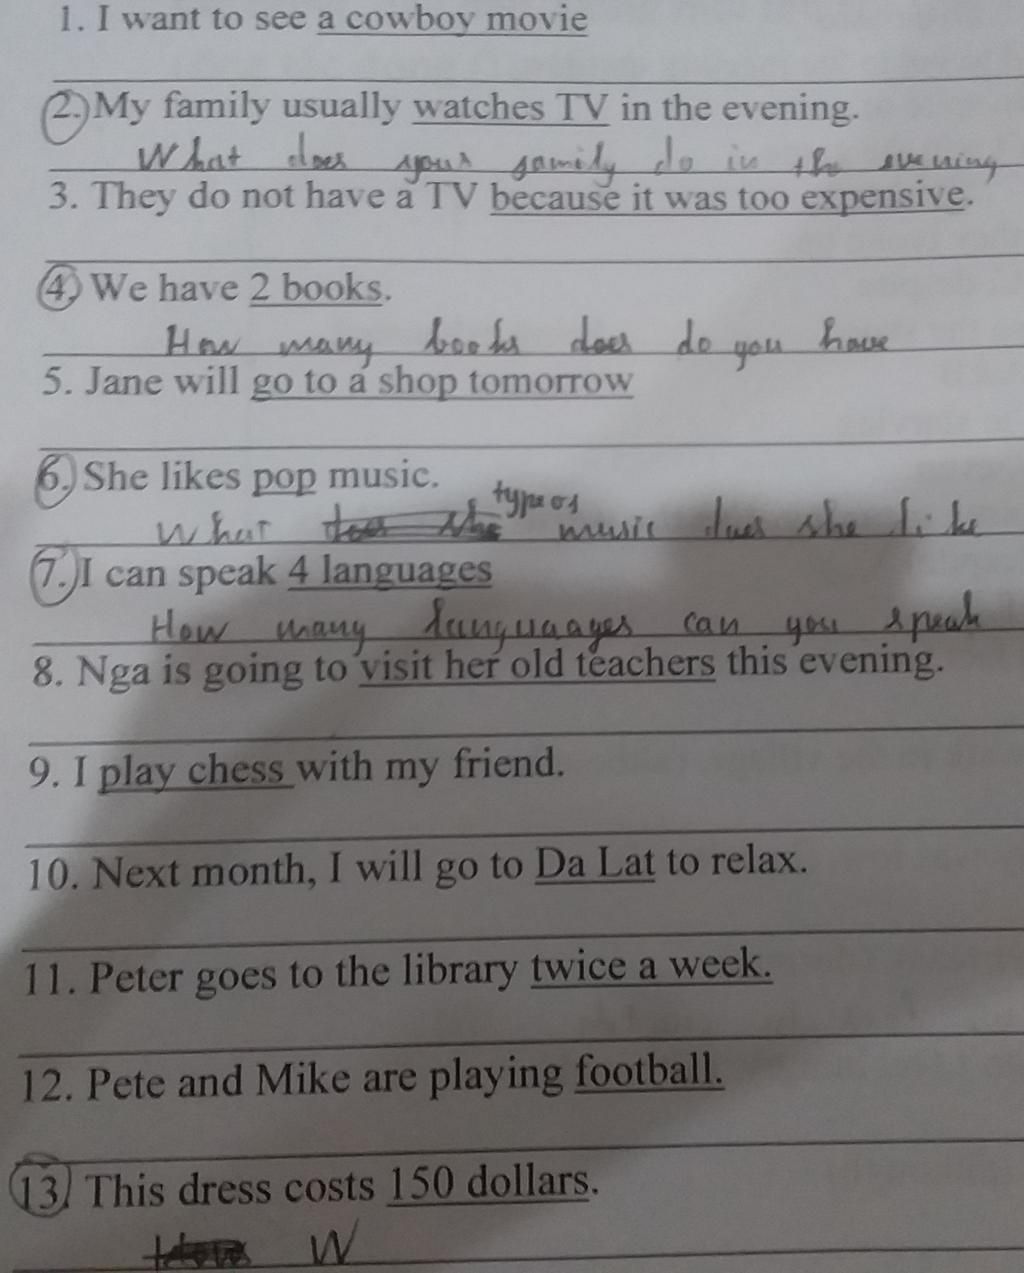 1. I want to see a cowboy movie
2. My family usually watches TV in the evening.
What does your family do in the evening
3. They do not have a TV because it was too expensive.
4, We have 2 books.
How many books does do you have
5. Jane will go to a shop tomorrow
6. She likes pop music.
type of
What music does she like
7. I can speak 4 languages
How many languaages can you speak
8. Nga is going to visit her old teachers this evening.
9. I play chess with my friend.
10. Next month, I will go to Da Lat to relax.
11. Peter goes to the library twice a week.
12. Pete and Mike are playing football.
13. This dress costs 150 dollars.
W